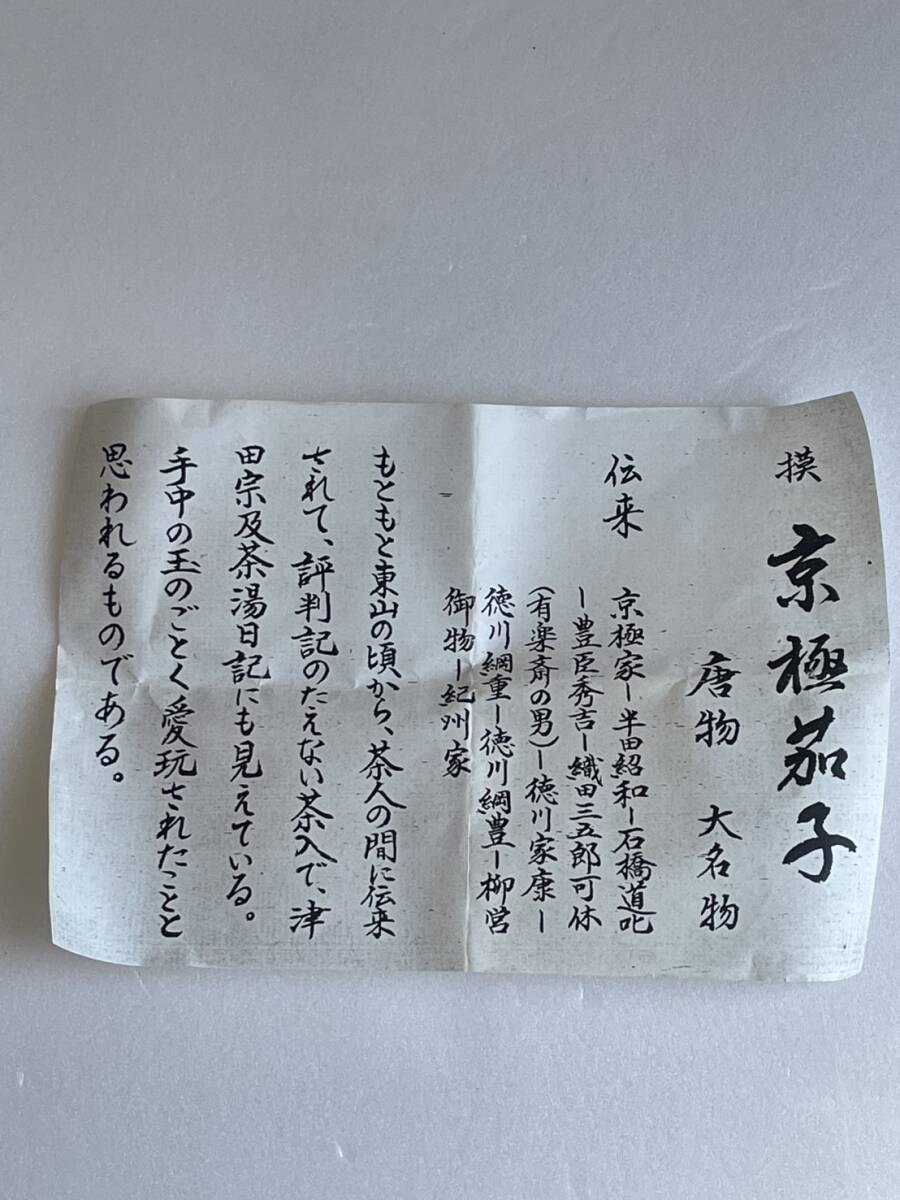 摸 京極茄子
唐物 大名物
伝来
京極家ー半田紹和ー石橋道叱
ー豊臣秀吉ー織田三五郎可休
(有楽斎の男)ー徳川家康ー
徳川綱重ー徳川綱豊ー柳営
御物ー紀州家
もともと東山の頃から、茶人の間に伝来
されて、評判記のたえない茶入で、津
田宗及茶湯日記にも見えている。
手中の玉のごとく愛玩されたことと
思われるものである。